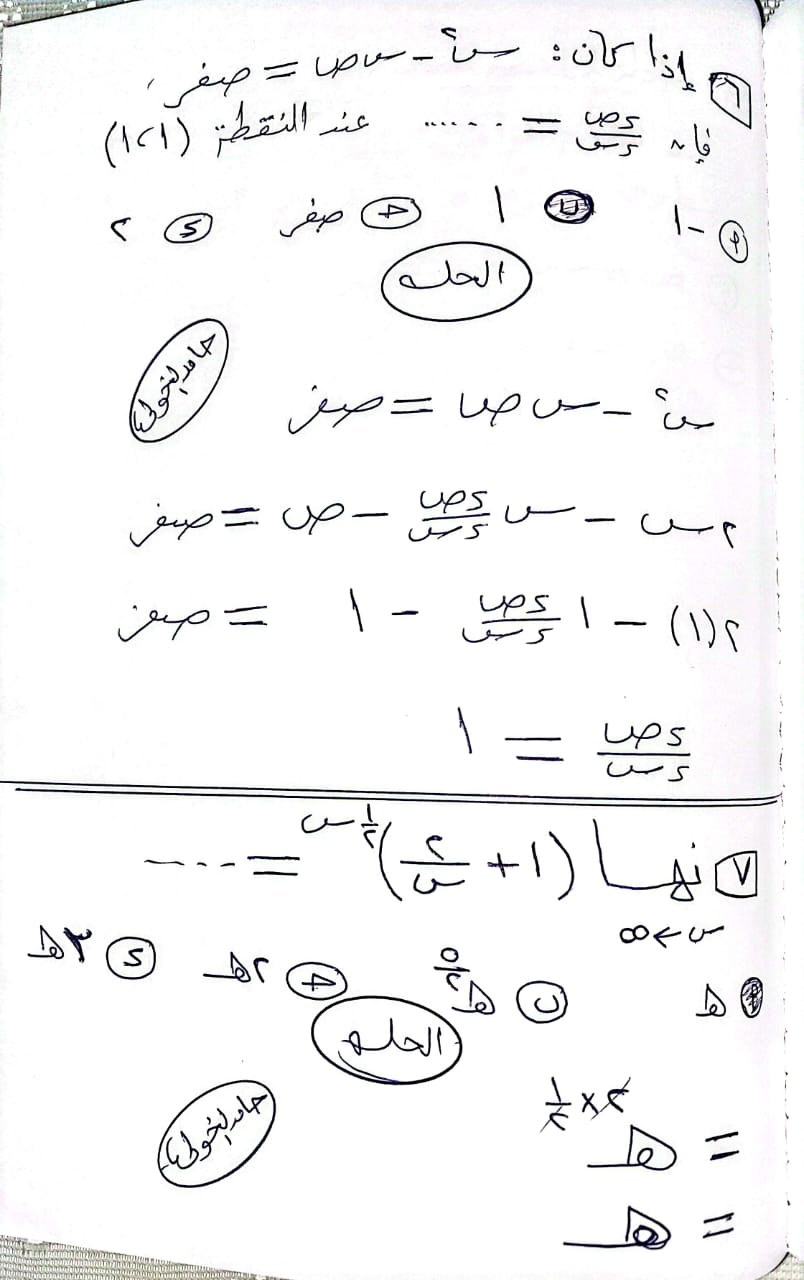 ٦ إذا كان: س² - س ص = صفر ،
فإن دص/دس = ...... عند النقطة (١،١)
أ -١ ب ١ ج صفر د ٢
الحل
حامد الخولي
س² - س ص = صفر
٢س - س دص/دس - ص = صفر
٢(١) - ١ دص/دس - ١ = صفر
دص/دس = ١
٧ نهـا (١ + ٢/س)^(١/٢ س) = ....
س ← ∞
أ هـ ب هـ^(٥/٢) ج ٢هـ د ٣هـ
الحل
حامد الخولي
= هـ^(٢ × ١/٢)
= هـ